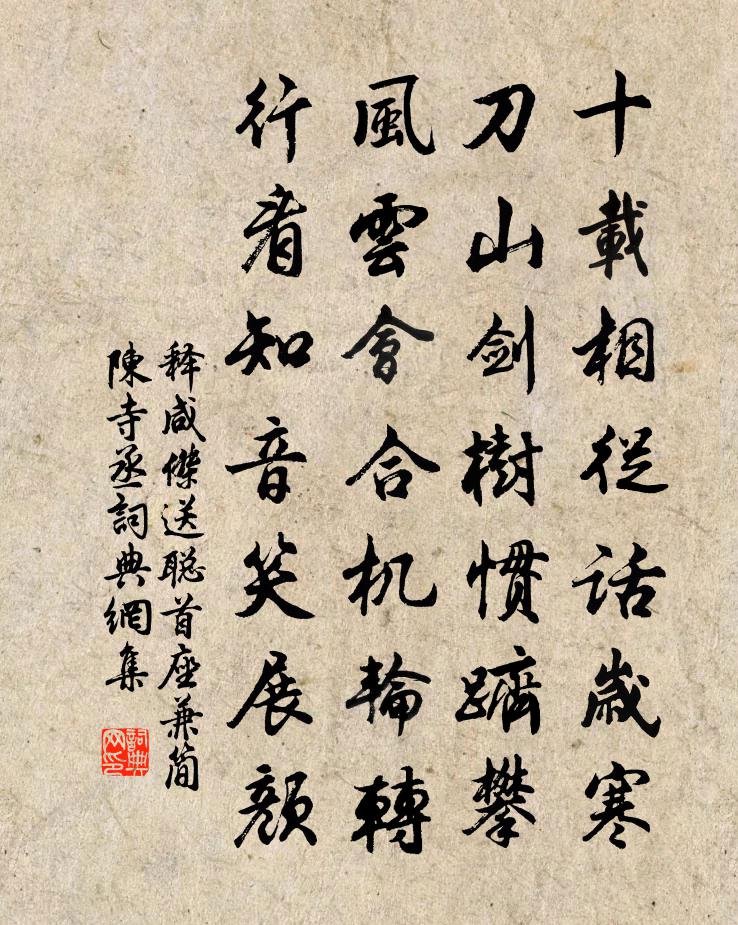 十載相從話歲寒
刀山劍樹慣躋攀
風雲會合机輪轉
行看知音笑展顏
释咸傑送聪首座兼简
陳寺丞詞典網集
詞典网印